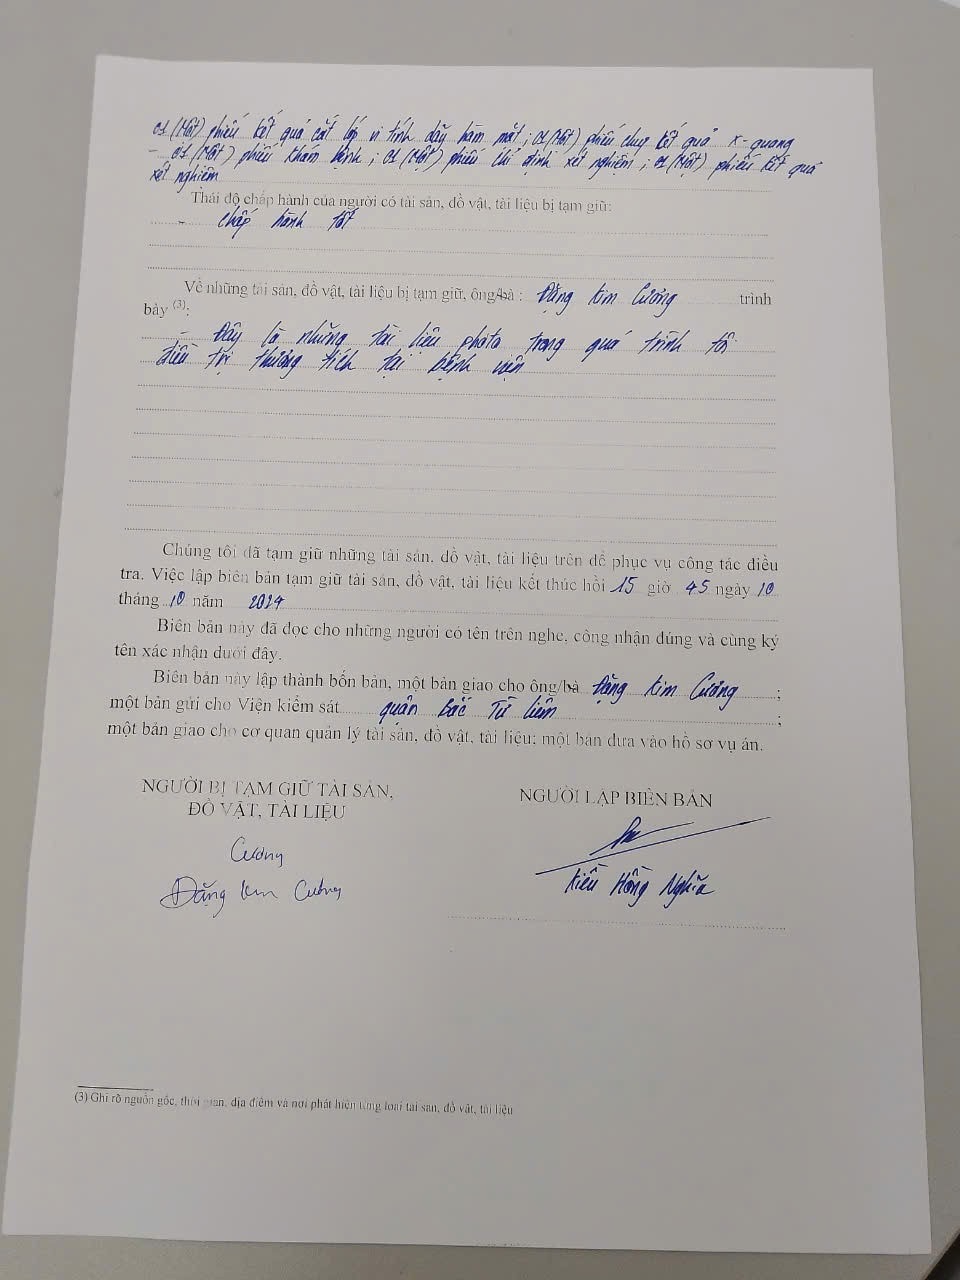 01 (Một) phiếu kết quả cắt lớp vi tính dãy hàm mặt; 01 (Một) phiếu chụp kết quả x-quang
- 01 (Một) phiếu khám bệnh; 01 (Một) phiếu chỉ định xét nghiệm; 01 (Một) phiếu kết quả
xét nghiệm
Thái độ chấp hành của người có tài sản, đồ vật, tài liệu bị tạm giữ:
- chấp hành tốt
Về những tài sản, đồ vật, tài liệu bị tạm giữ, ông/bà : Đặng Kim Cương trình
bày (3):
- Đây là những tài liệu photo trong quá trình tôi
điều trị thương tích tại bệnh viện
Chúng tôi đã tạm giữ những tài sản, đồ vật, tài liệu trên để phục vụ công tác điều
tra. Việc lập biên bản tạm giữ tài sản, đồ vật, tài liệu kết thúc hồi 15 giờ 45 ngày 10
tháng 10 năm 2024
Biên bản này đã đọc cho những người có tên trên nghe, công nhận đúng và cùng ký
tên xác nhận dưới đây.
Biên bản này lập thành bốn bản, một bản giao cho ông/bà Đặng Kim Cương ;
một bản gửi cho Viện kiểm sát quận Bắc Từ Liêm ;
một bản giao cho cơ quan quản lý tài sản, đồ vật, tài liệu; một bản đưa vào hồ sơ vụ án.
NGƯỜI BỊ TẠM GIỮ TÀI SẢN,
ĐỒ VẬT, TÀI LIỆU
Cương
Đặng Kim Cương
NGƯỜI LẬP BIÊN BẢN
Kiều Hồng Nghĩa
(3) Ghi rõ nguồn gốc, thời gian, địa điểm và nơi phát hiện từng loại tài sản, đồ vật, tài liệu